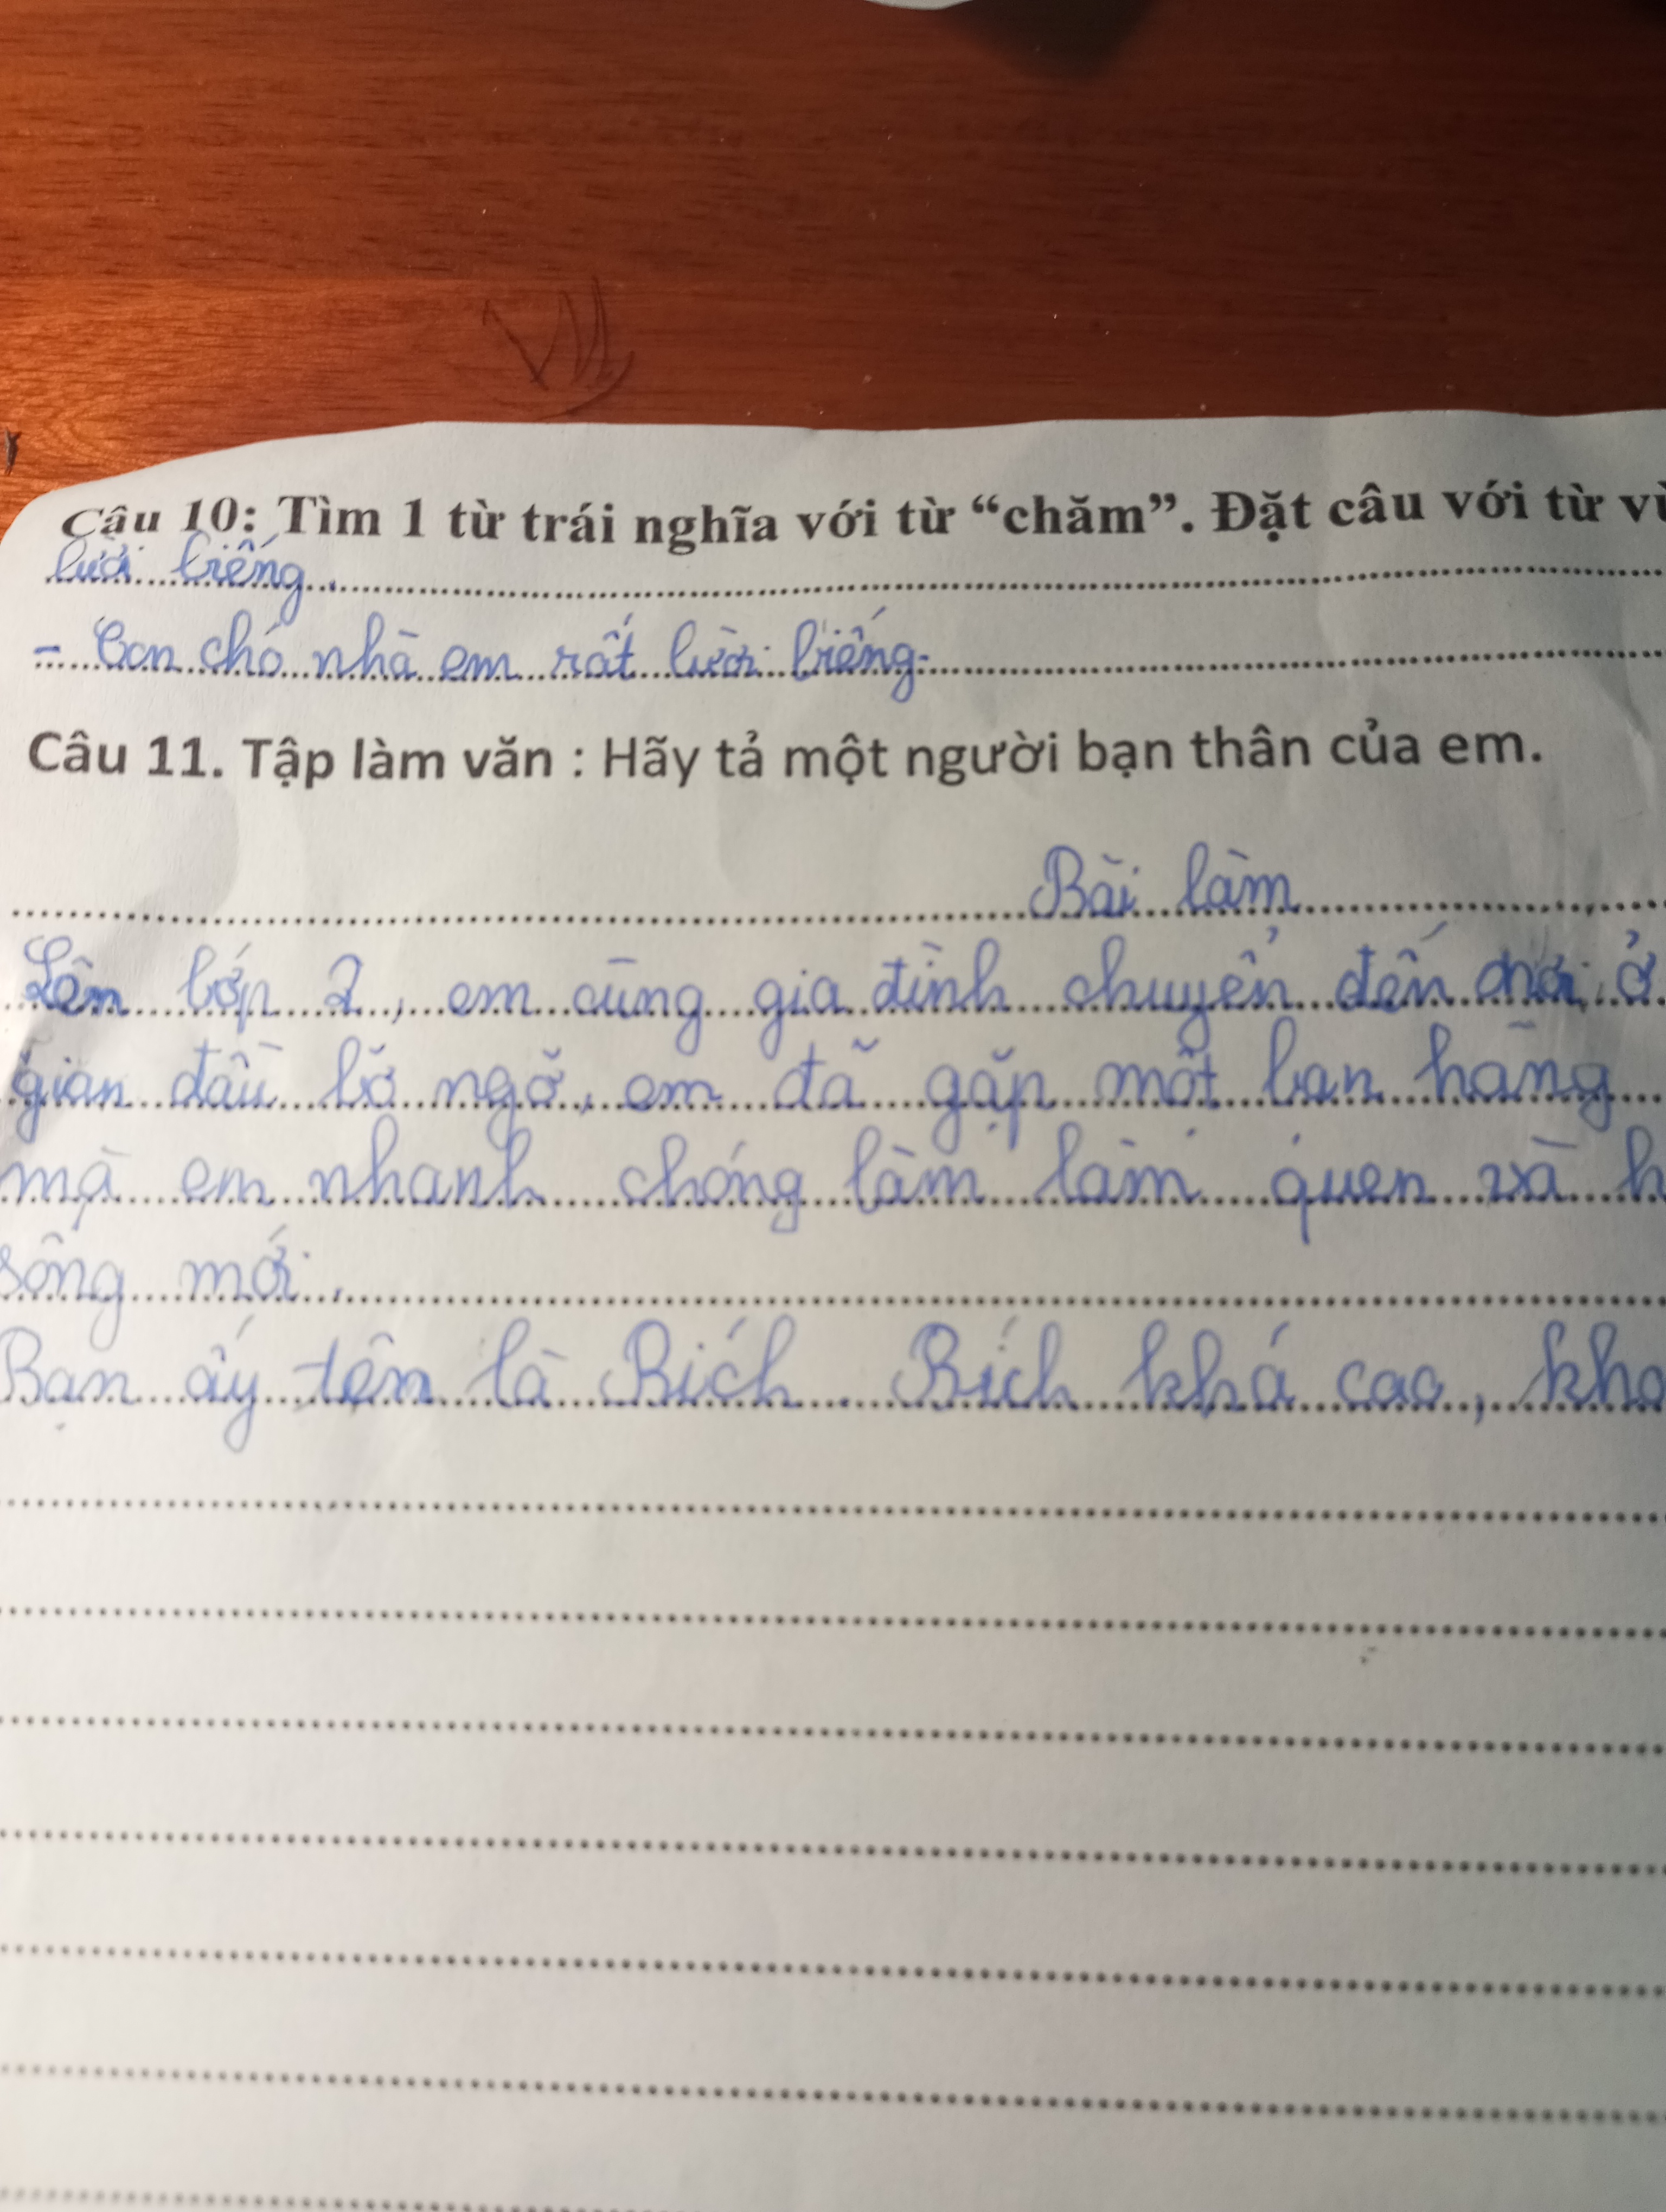 Câu 10: Tìm 1 từ trái nghĩa với từ “chăm”. Đặt câu với từ
lười biếng.
- Con chó nhà em rất lười biếng.
Câu 11. Tập làm văn : Hãy tả một người bạn thân của em.
Bài làm
Lên lớp 2, em cùng gia đình chuyển đến chỗ ở
gian đầu bỡ ngỡ, em đã gặp một bạn hàng
mà em nhanh chóng làm làm quen và h
sống mới.
Bạn ấy tên là Bích. Bích khá cao, kho